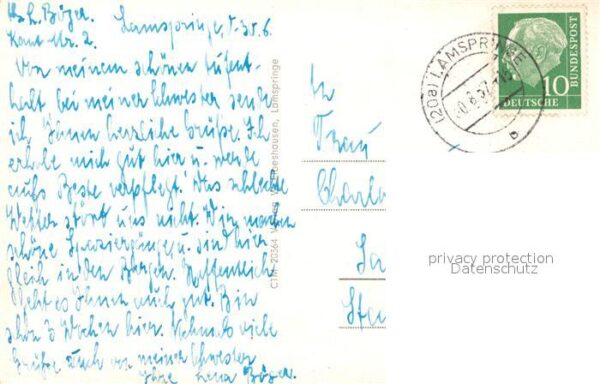 Lamspringe, d. 30.6.
Kant Nr. 2.
Von meinem schönen Aufent-
halt bei meiner Schwester sende
ich Ihnen herzliche Grüße. Ich
erhole mich gut hier u. werde
aufs Beste verpflegt. Das schlechte
Wetter stört uns nicht. Wir machen
schöne Spaziergänge, u. sind hier
gleich in den Bergen. Hoffentlich
geht es Ihnen auch gut. Bin
schon 3 Wochen hier. Nochmals viele
Grüße auch von meiner Schwester
Ihre Böger.
An
Frau
(20a) LAMSPRINGE
DEUTSCHE
BUNDESPOST
10
CTM-20364
Lamspringe
privacy protection
Datenschutz